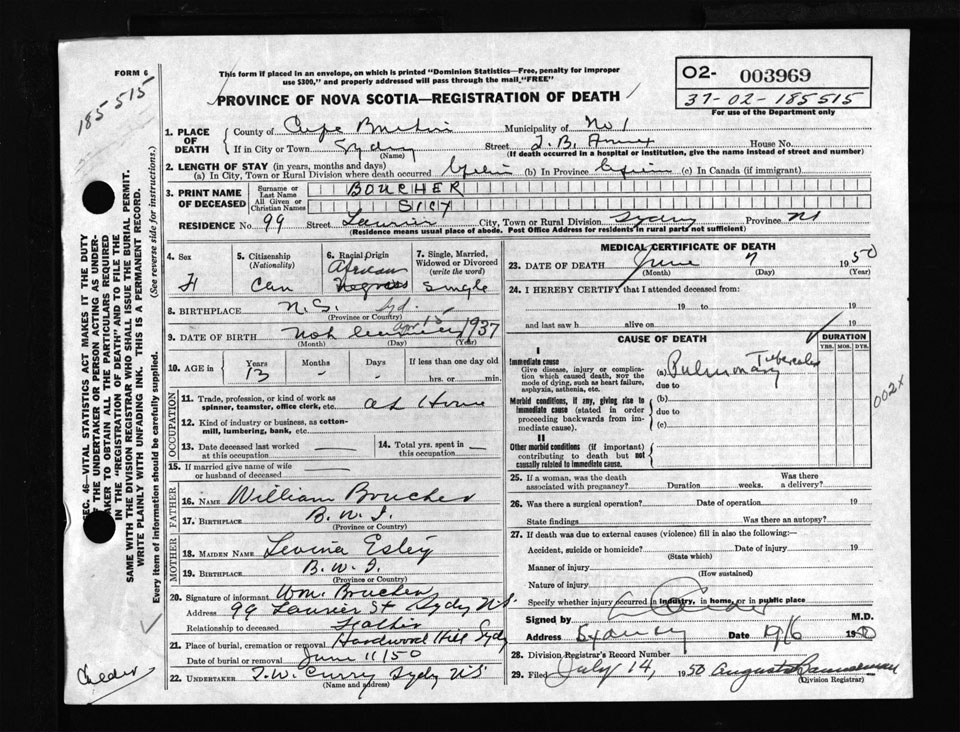 FORM 6
185515
This form if placed in an envelope, on which is printed "Dominion Statistics—Free, penalty for improper
use $300," and properly addressed will pass through the mail "FREE"
PROVINCE OF NOVA SCOTIA—REGISTRATION OF DEATH
O2- 003969
37-02-185515
For use of the Department only
1. PLACE OF DEATH { County of Cape Breton Municipality of No 1
If in City or Town Sydney (Name) Street T.B. Annex House No.
(If death occurred in a hospital or institution, give the name instead of street and number)
2. LENGTH OF STAY (in years, months and days)
(a) In City, Town or Rural Division where death occurred Lifetime (b) In Province Lifetime (c) In Canada (if immigrant)
3. PRINT NAME OF DECEASED { Surname or Last Name BOUCHER
All Given or Christian Names
RESIDENCE No. 99 Street Laurier City, Town or Rural Division Sydney Province NS
(Residence means usual place of abode. Post Office Address for residents in rural parts not sufficient)
4. Sex F
5. Citizenship (Nationality) Can
6. Racial Origin African Negress
7. Single, Married, Widowed or Divorced (write the word) Single
8. BIRTHPLACE N.S. Syd.
(Province or Country)
9. DATE OF BIRTH Apr 15 1937
(Month) (Day) (Year)
10. AGE in { Years 13 Months 2 Days If less than one day old
hrs. or min.
OCCUPATION
11. Trade, profession, or kind of work as spinner, teamster, office clerk, etc. at Home
12. Kind of industry or business, as cotton-mill, lumbering, bank, etc.
13. Date deceased last worked at this occupation
14. Total yrs. spent in this occupation
15. If married give name of wife or husband of deceased
FATHER
16. NAME William Boucher
17. BIRTHPLACE B.W.I.
(Province or Country)
MOTHER
18. MAIDEN NAME Levina Esley
19. BIRTHPLACE B.W.I.
(Province or Country)
20. Signature of informant Wm. Boucher
Address 99 Laurier St Sydney NS.
Relationship to deceased Father
21. Place of burial, cremation or removal Hardwood Hill Sydney
Date of burial or removal June 11/50
22. UNDERTAKER T.W. Curry Sydney NS
(Name and address)
MEDICAL CERTIFICATE OF DEATH
23. DATE OF DEATH June 7 1950
(Month) (Day) (Year)
24. I HEREBY CERTIFY that I attended deceased from:
19 to 19
and last saw h alive on 19
CAUSE OF DEATH
DURATION
YRS. MOS. DYS.
I
Immediate cause
Give disease, injury or complication which caused death, NOT the mode of dying, such as heart failure, asphyxia, asthenia, etc.
(a) Pulmonary Tuberculosis
due to
Morbid conditions, if any, giving rise to immediate cause (stated in order proceeding backwards from immediate cause).
(b)
due to
(c)
II
Other morbid conditions (if important) contributing to death but not causally related to immediate cause.
002X
25. If a woman, was the death associated with pregnancy? Duration weeks. Was there a delivery?
26. Was there a surgical operation? Date of operation 19
State findings Was there an autopsy?
27. If death was due to external causes (violence) fill in also the following:—
Accident, suicide or homicide? Date of injury 19
(State which)
Manner of injury
(How sustained)
Nature of injury
Specify whether injury occurred in industry, in home, or in public place
Signed by M.D.
Address Sydney Date 19/6 1950
28. Division Registrar's Record Number
29. Filed July 14, 1950 Augusta Bannerman
(Division Registrar)
SEC. 46—VITAL STATISTICS ACT MAKES IT THE DUTY
OF THE UNDERTAKER OR PERSON ACTING AS UNDER-
TAKER TO OBTAIN ALL THE PARTICULARS REQUIRED
IN THE "REGISTRATION OF DEATH" AND TO FILE THE
SAME WITH THE DIVISION REGISTRAR WHO SHALL ISSUE THE BURIAL PERMIT.
WRITE PLAINLY WITH UNFADING INK. THIS IS A PERMANENT RECORD.
Every item of information should be carefully supplied. (See reverse side for instructions.)